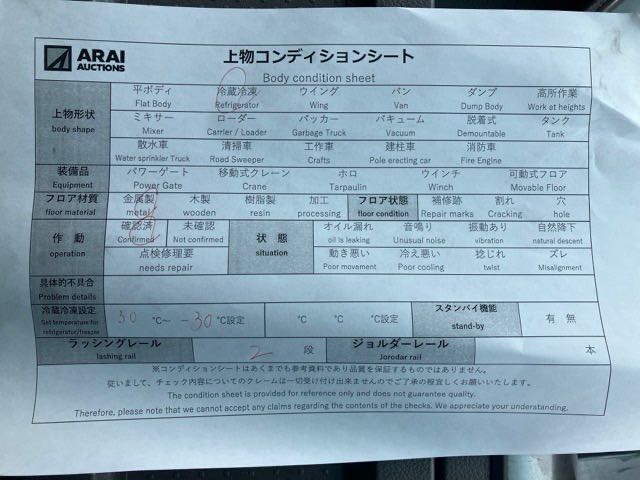 ARAI
AUCTIONS
上物コンディションシート
Body condition sheet
上物形状
body shape
平ボディ 冷蔵冷凍 ウイング バン ダンプ 高所作業
Flat Body Refrigerator Wing Van Dump Body Work at heights
ミキサー ローダー パッカー バキューム 脱着式 タンク
Mixer Carrier / Loader Garbage Truck Vacuum Demountable Tank
散水車 清掃車 工作車 建柱車 消防車
Water sprinkler Truck Road Sweeper Crafts Pole erecting car Fire Engine
装備品 パワーゲート 移動式クレーン ホロ ウインチ 可動式フロア
Equipment Power Gate Crane Tarpaulin Winch Movable Floor
フロア材質 金属製 木製 樹脂製 加工 フロア状態 補修跡 割れ 穴
floor material metal wooden resin processing floor condition Repair marks Cracking hole
作動
operation
確認済 未確認
Confirmed Not confirmed
点検修理要
needs repair
状態
situation
オイル漏れ 音鳴り 振動あり 自然降下
oil is leaking Unusual noise vibration natural descent
動き悪い 冷え悪い 捻じれ ズレ
Poor movement Poor cooling twist Misalignment
具体的不具合
Problem details
冷蔵冷凍設定 30 ℃~ -30 ℃設定 ℃ ℃ ℃設定 スタンバイ機能 有 無
Get temperature for refrigerator/freezer stand-by
ラッシングレール 2 段 ジョルダーレール 本
lashing rail Jorodar rail
※コンディションシートはあくまでも参考資料であり品質を保証するものではありません。
従いまして、チェック内容についてのクレームは一切受け付け出来ませんのでご了承の程宜しくお願いいたします。
The condition sheet is provided for reference only and does not guarantee quality.
Therefore, please note that we cannot accept any claims regarding the contents of the checks. We appreciate your understanding.